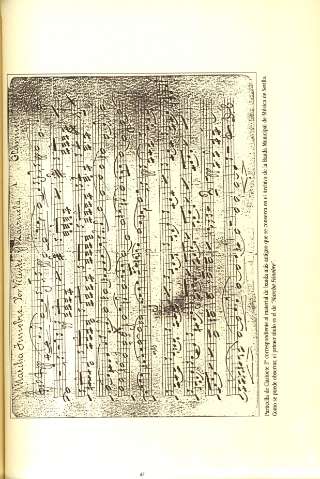 Marcha Funebre
Particella de Clarinete 1º correspondiente al material de banda más antiguo que se conserva en el archivo de la Banda Municipal de Música de Sevilla.
Como se puede observar, el primer título es el de "Marcha Fúnebre".